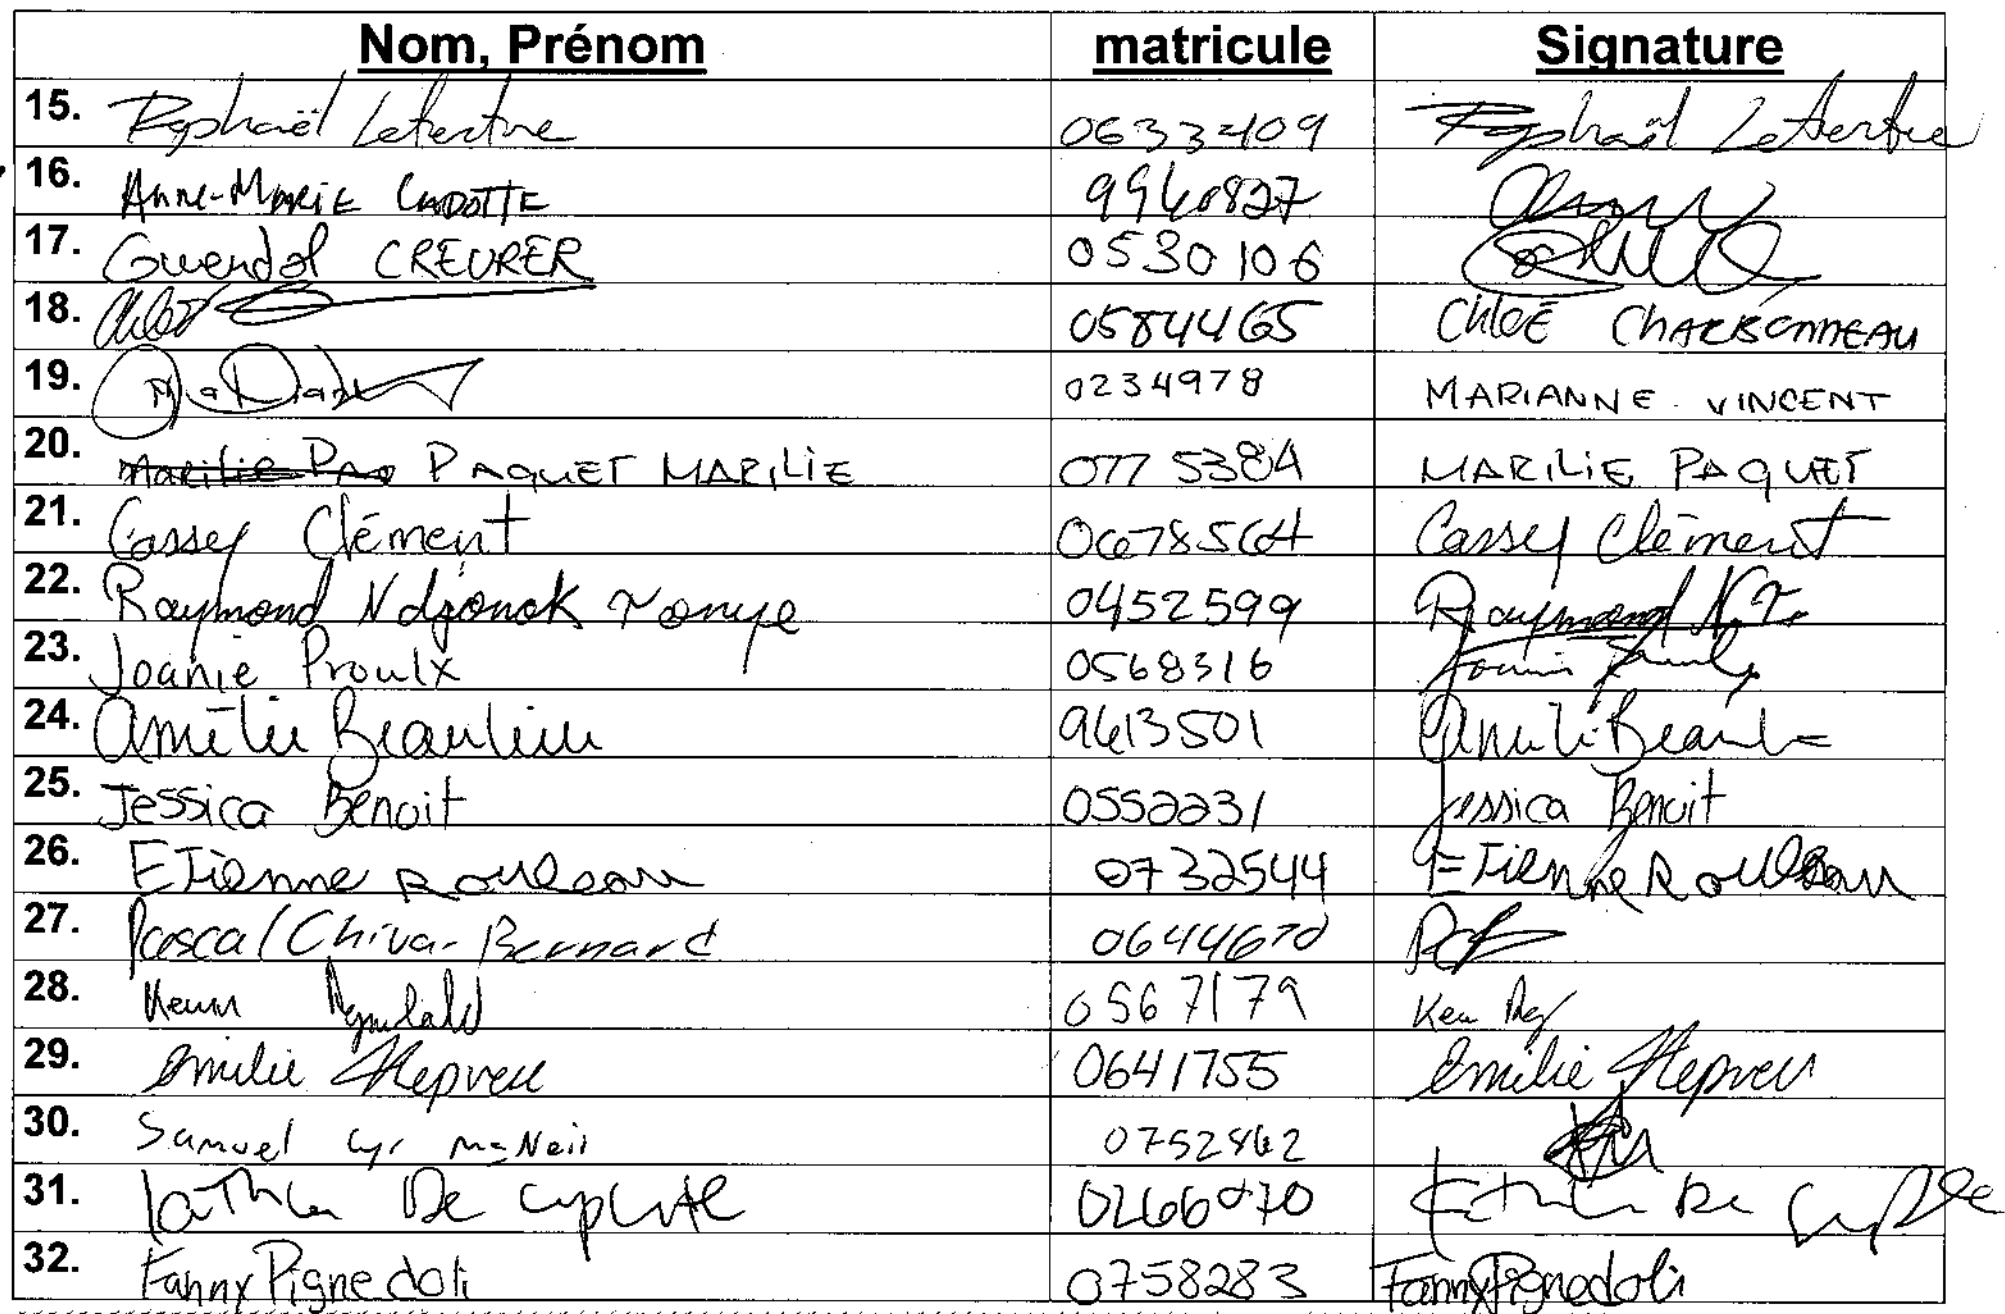 Nom, Prénom matricule Signature
15. Raphaël Letertre 0633409 Raphaël Letertre
16. Anne-Marie CADOTTE 9940827
17. Gwendol CREURER 0530106
18. 0584465 Chloé CHARBONNEAU
19. 0234978 MARIANNE VINCENT
20. Marilie Paq PAQUET MARILIE 0775384 MARILIE PAQUET
21. Cassey Clément 0678564 Cassey Clément
22. Raymond Ndjonok Tonye 0452599 Raymond N.T.
23. Joanie Proulx 0568316 Joanie Proulx
24. Amélie Beaulieu 9613501 Amélie Beaulieu
25. Jessica Benoit 0552231 Jessica Benoit
26. Etienne Rouleau 0732544 Etienne Rouleau
27. Pascal Chiva-Bernard 0644670
28. 0567179
29. Emilie Hepveu 0641755 Emilie Hepveu
30. Samuel Cyr McNeil
31. De De
32. Fanny Pignedoli 0758283 Fanny Pignedoli